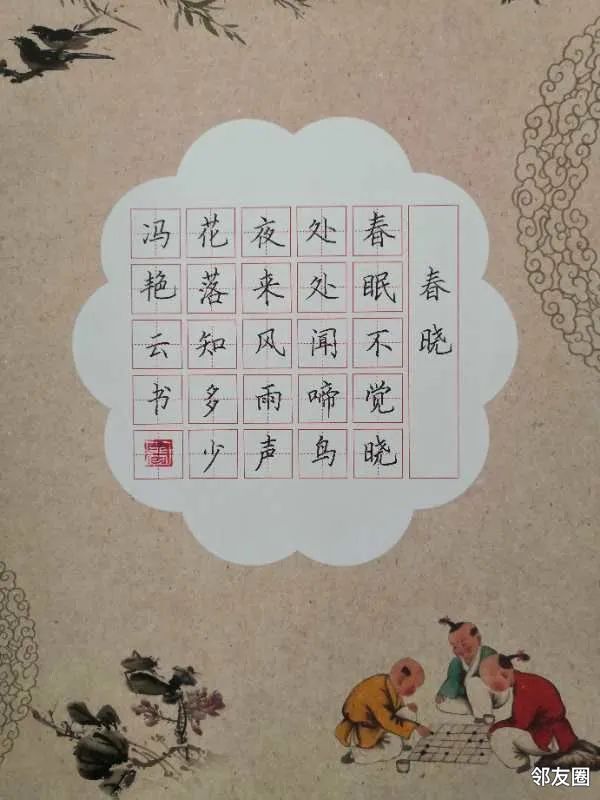 春晓
春眠不觉晓
处处闻啼鸟
夜来风雨声
花落知多少
冯艳云书
邻友圈